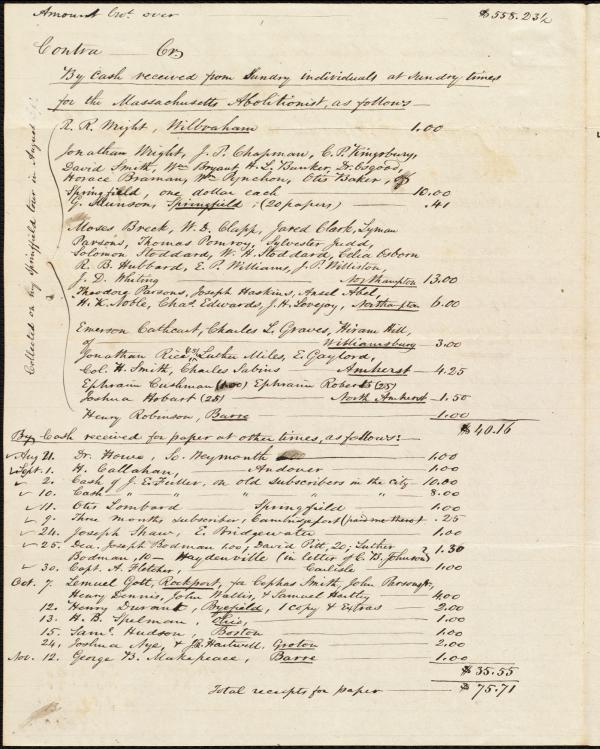 Amount bro't over $558.23½
Contra Cr.
By Cash received from Sundry individuals at Sundry times
for the Massachusetts Abolitionist, as follows
Collected on my Springfield tour in August
R. R. Wright, Wilbraham 1.00
Jonathan Wright, J. P. Chapman, C. P. Kingsbury,
David Smith, Wm Bryant, H. L. Bunker, D. Osgood,
Horace Braman, Wm Pynchon, Otis Baker, of
Springfield, one dollar each 10.00
G. Munson, Springfield; (20 papers) .41
Moses Breck, W. D. Clapp, Jared Clark, Lyman
Parsons, Thomas Pomroy, Sylvester Judd,
Solomon Stoddard, W. H. Stoddard, Celia Osborn
R. B. Hubbard, E. P. Williams, J. P. Williston,
J. D. Whiting Northampton 13.00
Theodore Parsons, Joseph Haskins, Ansel Abel,
H. K. Noble, Chas. Edwards, J. H. Lovejoy, Northampton 6.00
Emerson Cathcart, Charles L. Graves, Hiram Hill,
of Williamsburg 3.00
Jonathan Rice, Luther Miles, E. Gaylord,
Col. H. Smith, Charles Sabins Amherst 4.25
Ephraim Cushman (100) Ephraim Roberts (25)
Joshua Hobart (25) North Amherst 1.50
Henry Robinson, Barre 1.00
$40.16
By Cash received for paper at other times, as follows:
Aug 21. Dr. Howe, So. Weymouth 1.00
Sept. 1. H. Callahan, Andover 1.00
2. Cash of J. E. Fuller, on old Subscribers in the city 10.00
10. Cash " " " " " 8.00
11. Otis Lombard Springfield 1.00
9. Three months subscriber, Cambridgeport (paid me there) .25
24. Joseph Shaw, E. Bridgewater 1.00
25. Dea. Joseph Bodman 100, David Pitt, 20; Luther
Bodman, 10 Haydenville (in letter of C. B. Johnson) 1.30
30. Capt. A. Fletcher, Carlisle 1.00
Oct. 7. Lemuel Gott, Rockport, for Cephas Smith, John Parsons,
Henry Dennis, John Wallis, & Samuel Huntley 4.00
12. Henry Durant, Byefield, 1 copy & Extras 2.00
13. H. B. Spelman, Ohio, 1.00
15. Saml. Hudson, Boston 1.00
24, Joshua Nye, & J. Hartwell, Groton 2.00
Nov. 12. George B. Makepeace, Barre 1.00
$35.55
Total receipts for paper $75.71